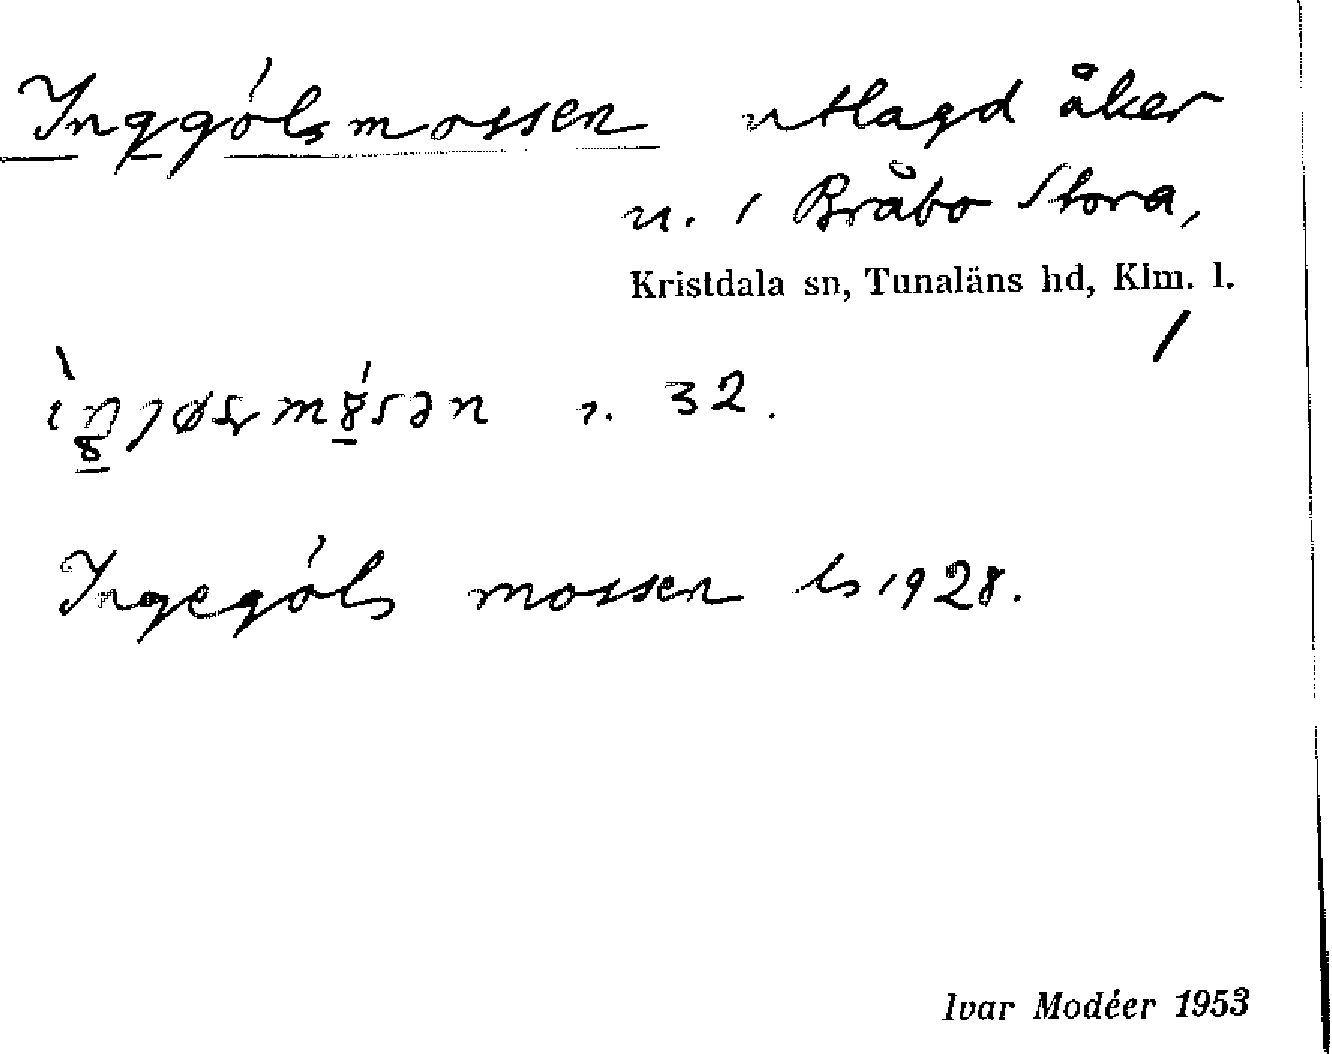 Inggölsmossen utlagd åker
n. 1 Bråbo Stora,
Kristdala sn, Tunaläns hd, Klm. l.
32.
Ingegöls mossen ls 1928.
Ivar Modéer 1953